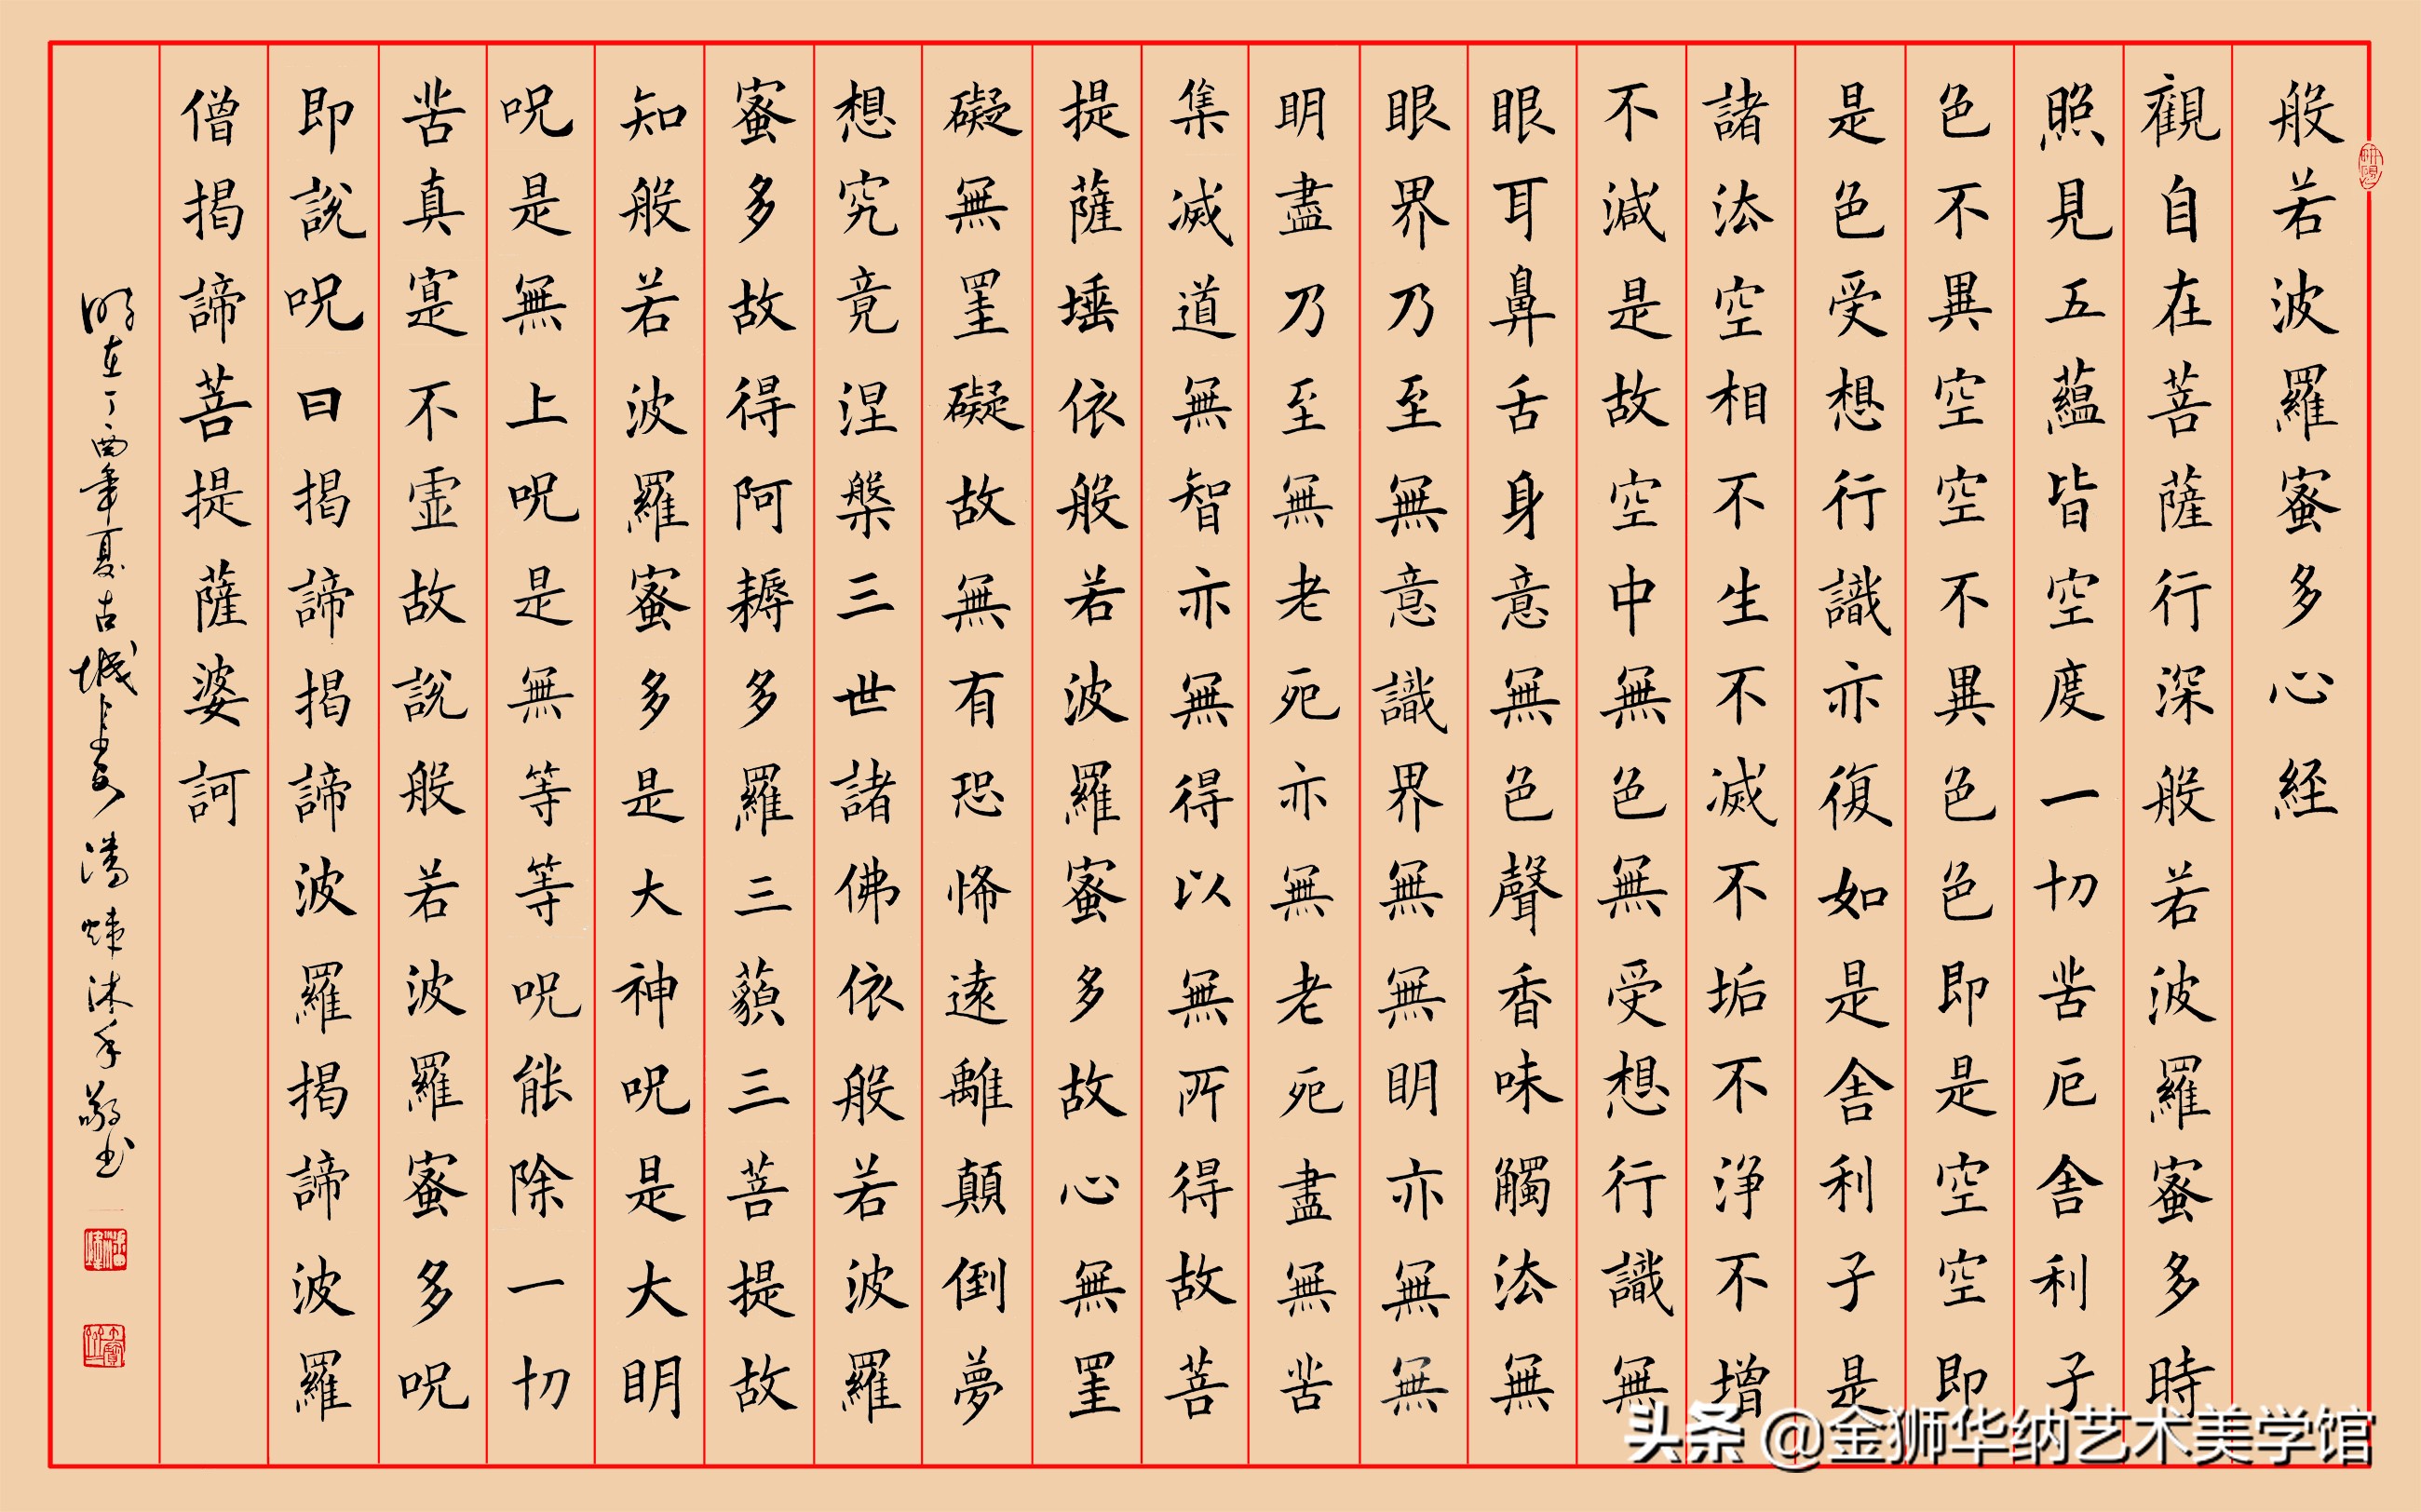 般若波羅蜜多心経
觀自在菩薩行深般若波羅蜜多時
照見五蘊皆空度一切苦厄舍利子
色不異空空不異色色即是空空即
是色受想行識亦復如是舍利子是
諸法空相不生不滅不垢不淨不增
不減是故空中無色無受想行識無
眼耳鼻舌身意無色聲香味觸法無
眼界乃至無意識界無無明亦無無
明盡乃至無老死亦無老死盡無苦
集滅道無智亦無得以無所得故菩
提薩埵依般若波羅蜜多故心無罣
礙無罣礙故無有恐怖遠離顛倒夢
想究竟涅槃三世諸佛依般若波羅
蜜多故得阿耨多羅三藐三菩提故
知般若波羅蜜多是大神呪是大明
呪是無上呪是無等等呪能除一切
苦真寔不虛故說般若波羅蜜多呪
即說呪曰揭諦揭諦波羅揭諦波羅
僧揭諦菩提薩婆訶
時在丁酉年夏古城長安潘沐手敬书
头条 @金狮华纳艺术美学馆